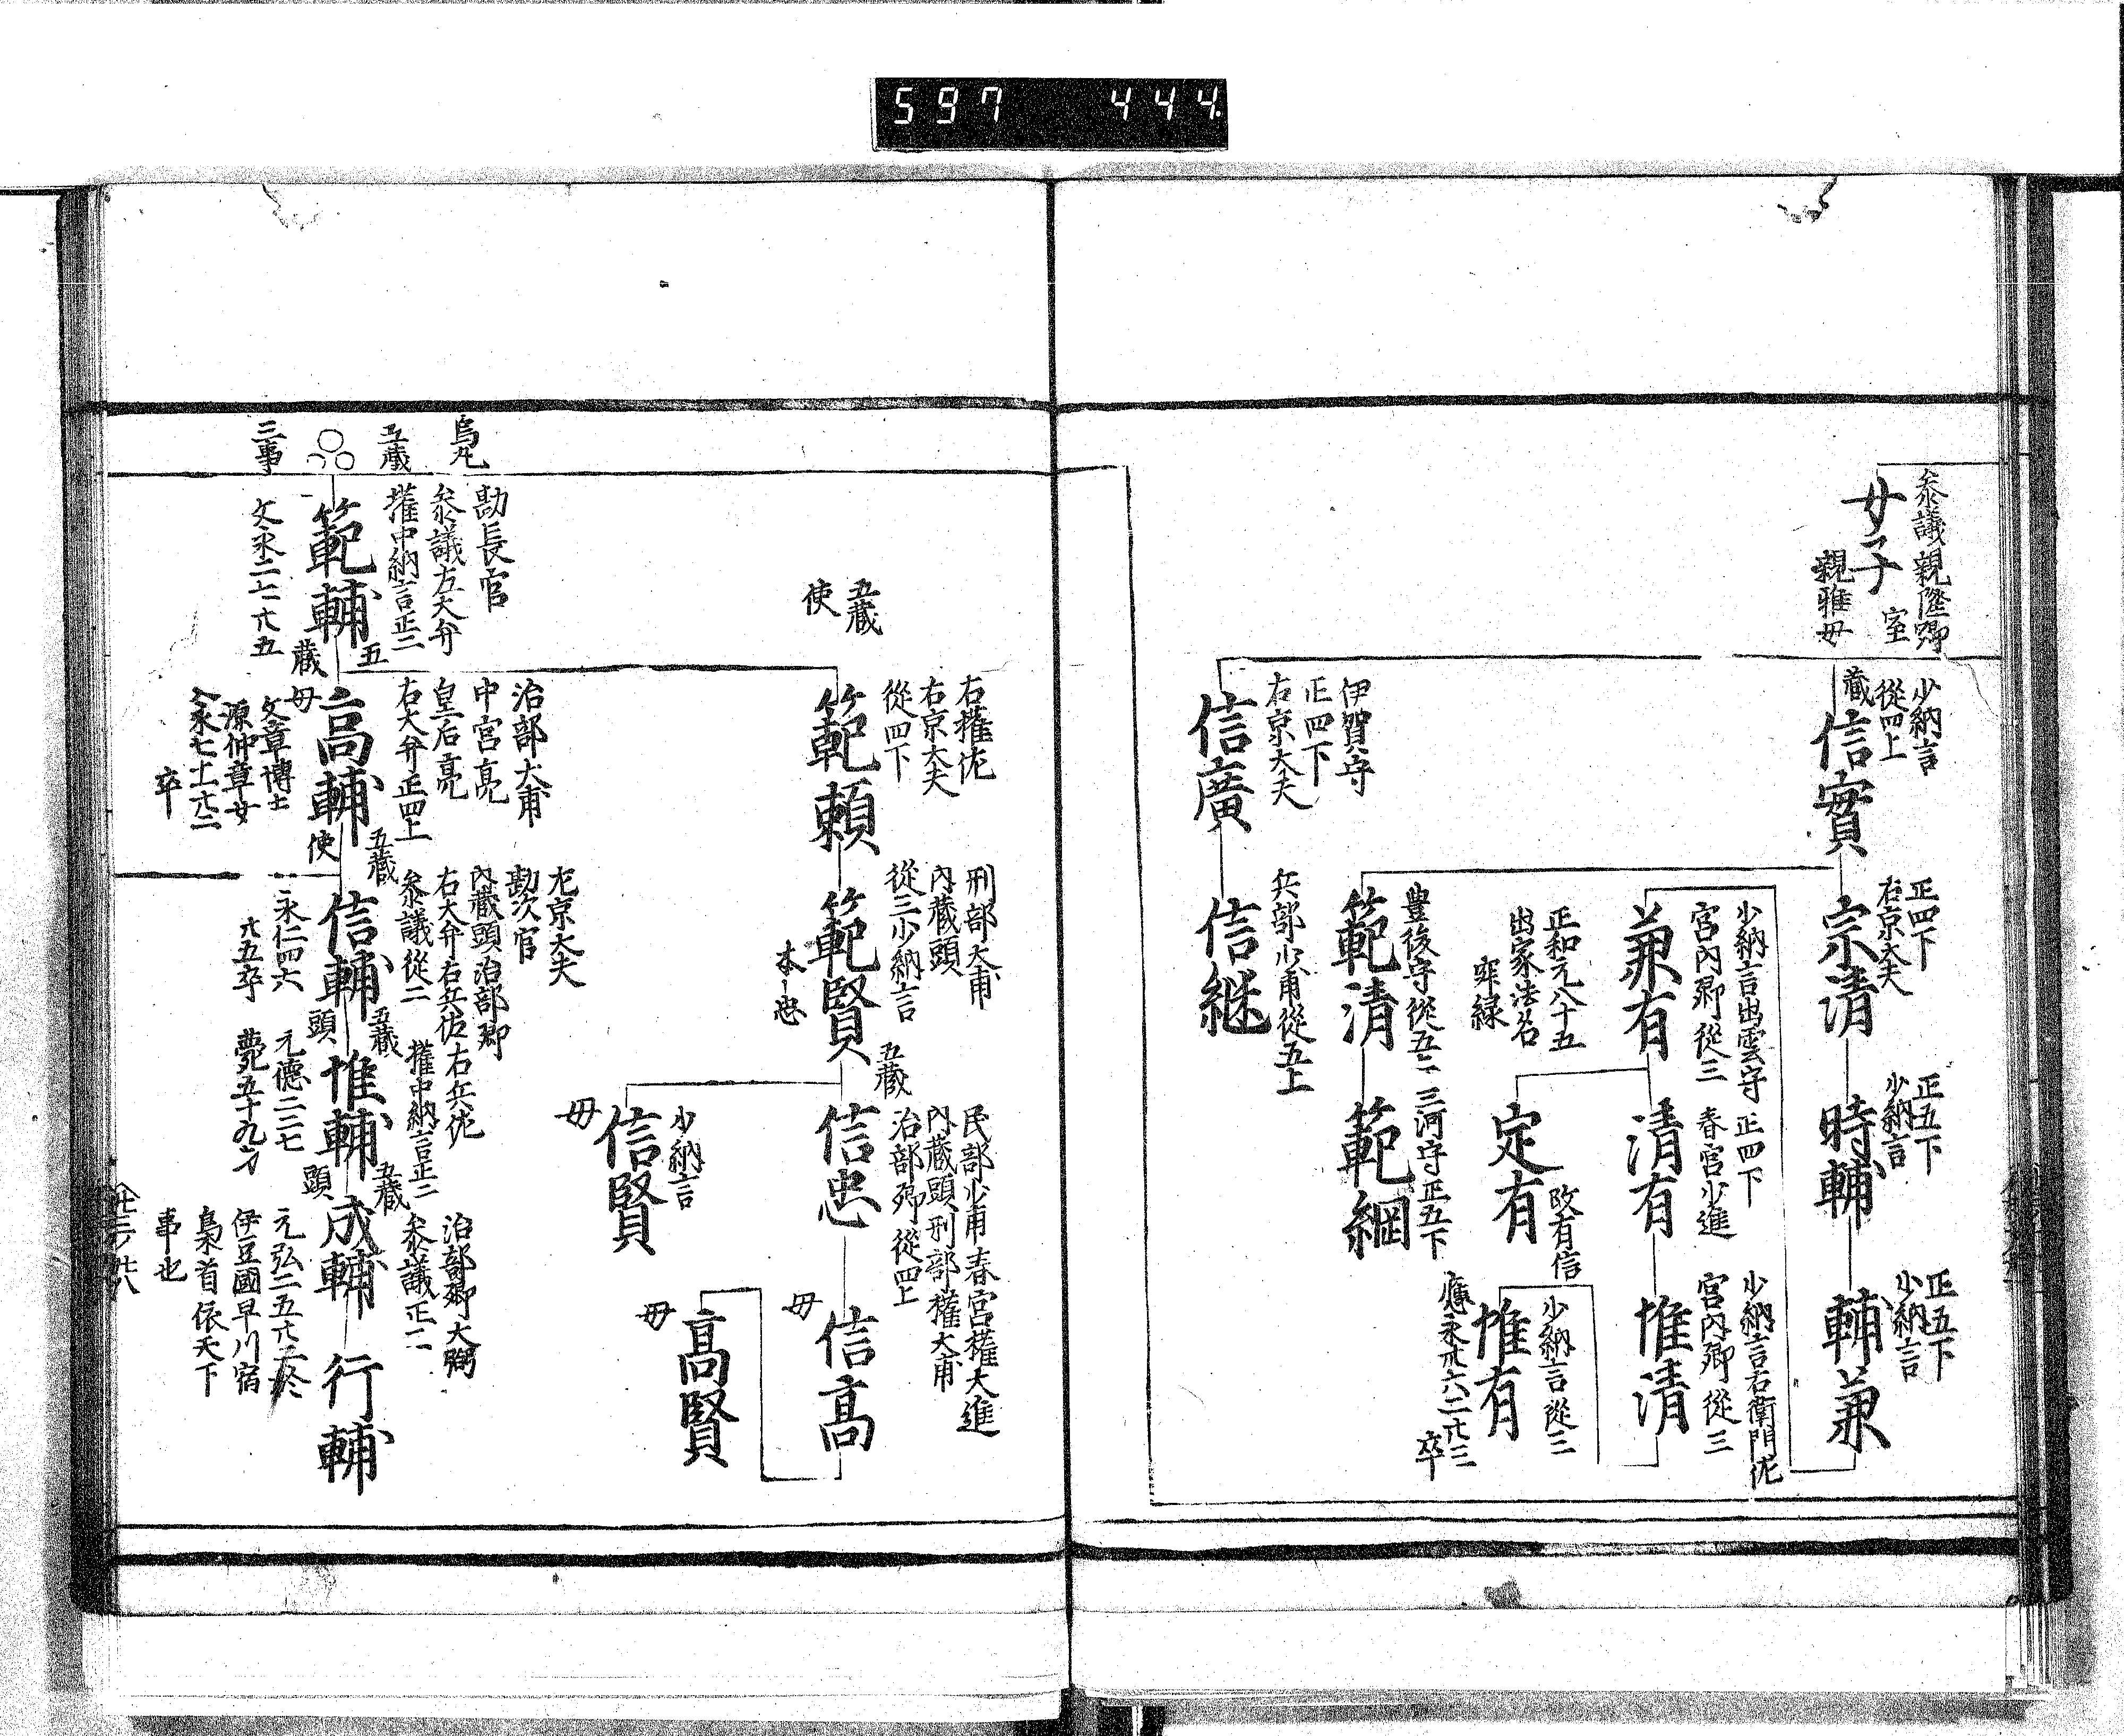 597 444.
参議親隆卿
室
女子
親雅母
少納言
從四上
藏
信實
正四下
右京大夫
宗清
正五下
少納言
時輔
正五下
少納言
輔兼
少納言出雲守
宮内卿從三
兼有
正和元八十五
出家法名
寂緑
正四下
春宮少進
清有
少納言右衛門佐
宮内卿從三
惟清
定有
改有信
少納言從三
惟有
應永卅六二廿三
卒
豊後守從五二
範清
三河守正五下
範綱
伊賀守
正四下
右京大夫
信廣
兵部少甫從五上
信継
五藏
使
右權佐
右京大夫
從四下
範頼
刑部大甫
内藏頭
從三少納言
範賢
本忠
五藏
民部少甫春宮權大進
内藏頭刑部權大甫
治部卿從四上
信忠
母
信高
少納言
母
信賢
母
高賢
烏丸
五藏
三事
勘長官
参議左大弁
權中納言正二
範輔
文永二七廿五
五
藏
治部大甫
中宮亮
皇后亮
右大弁正四上
高輔
母
文章博士
源仲章女
文永七十一廿二
卒
五藏
使
左京大夫
勘次官
内藏頭治部卿
右大弁右兵佐
参議從二
信輔
永仁四六
廿五卒
五藏
頭
右兵佐
權中納言正二
惟輔
元德二二七
薨五十九才
五藏
頭
治部卿大弼
参議正二
成輔
元弘二五廿二於
伊豆國早川宿
梟首依天下
事也
行輔